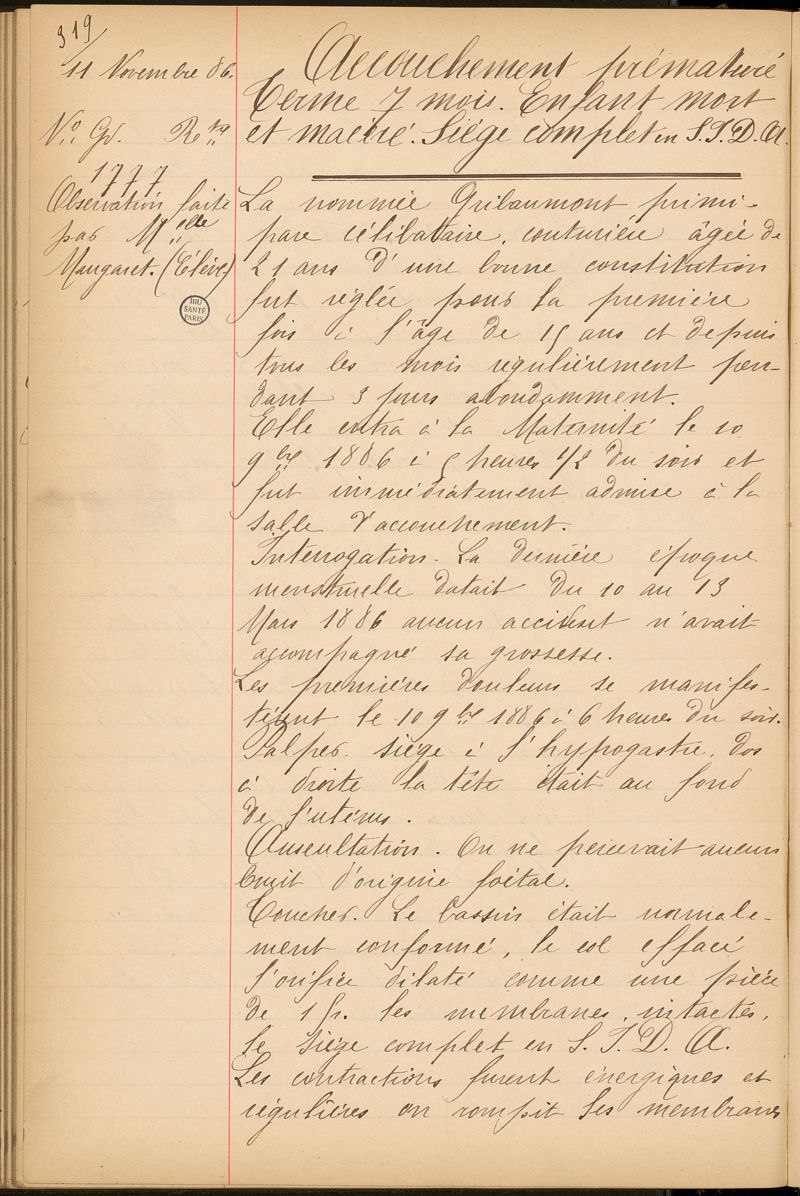 319
11 Novembre 86.
No Gd. Rotre
1777
Observation faite
par Melle
Maugaret. (Élève)
BIU
SANTÉ
PARIS
Accouchement prématuré
Terme 7 mois. Enfant mort
et macéré. Siége complet en S.I.D.A.
La nommée Gribaumont primi-
pare célibataire, couturière âgée de
21 ans d'une bonne constitution
fut réglée pour la première
fois à l'âge de 15 ans et depuis
tous les mois régulièrement pen-
dant 3 jours abondamment.
Elle entra à la Maternité le 10
9bre 1886 à 5 heures 1/2 du soir et
fut immédiatement admise à la
salle d'accouchement.
Interrogation. La dernière époque
menstruelle datait du 10 au 13
Mars 1886 aucun accident n'avait
accompagné sa grossesse.
Les premières douleurs se manifes-
tèrent le 10 9bre 1886 à 6 heures du soir.
Palper. Siége à l'hypogastre, dos
à droite la tête était au fond
de l'utérus.
Auscultation. On ne percevait aucun
bruit d'origine foetal.
Toucher. Le bassin était normale-
ment conformé, le col effacé
l'orifice dilaté comme une pièce
de 1 fr. les membranes intactes,
le siége complet en S.I.D.A.
Les contractions furent énergiques et
régulières on rompit les membranes